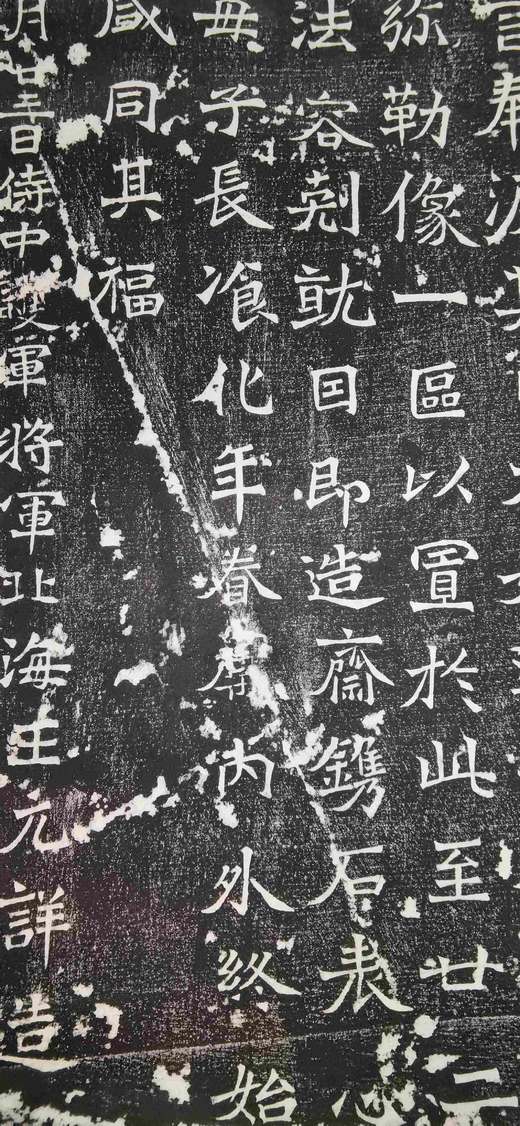 言奉淚其
弥勒像一區以置於此至廿二
法容剋就囙即造齋鐫石表心
母子長飡化年眷屬内外終始
咸同其福
月廿三日侍中護軍將軍北海王元詳造